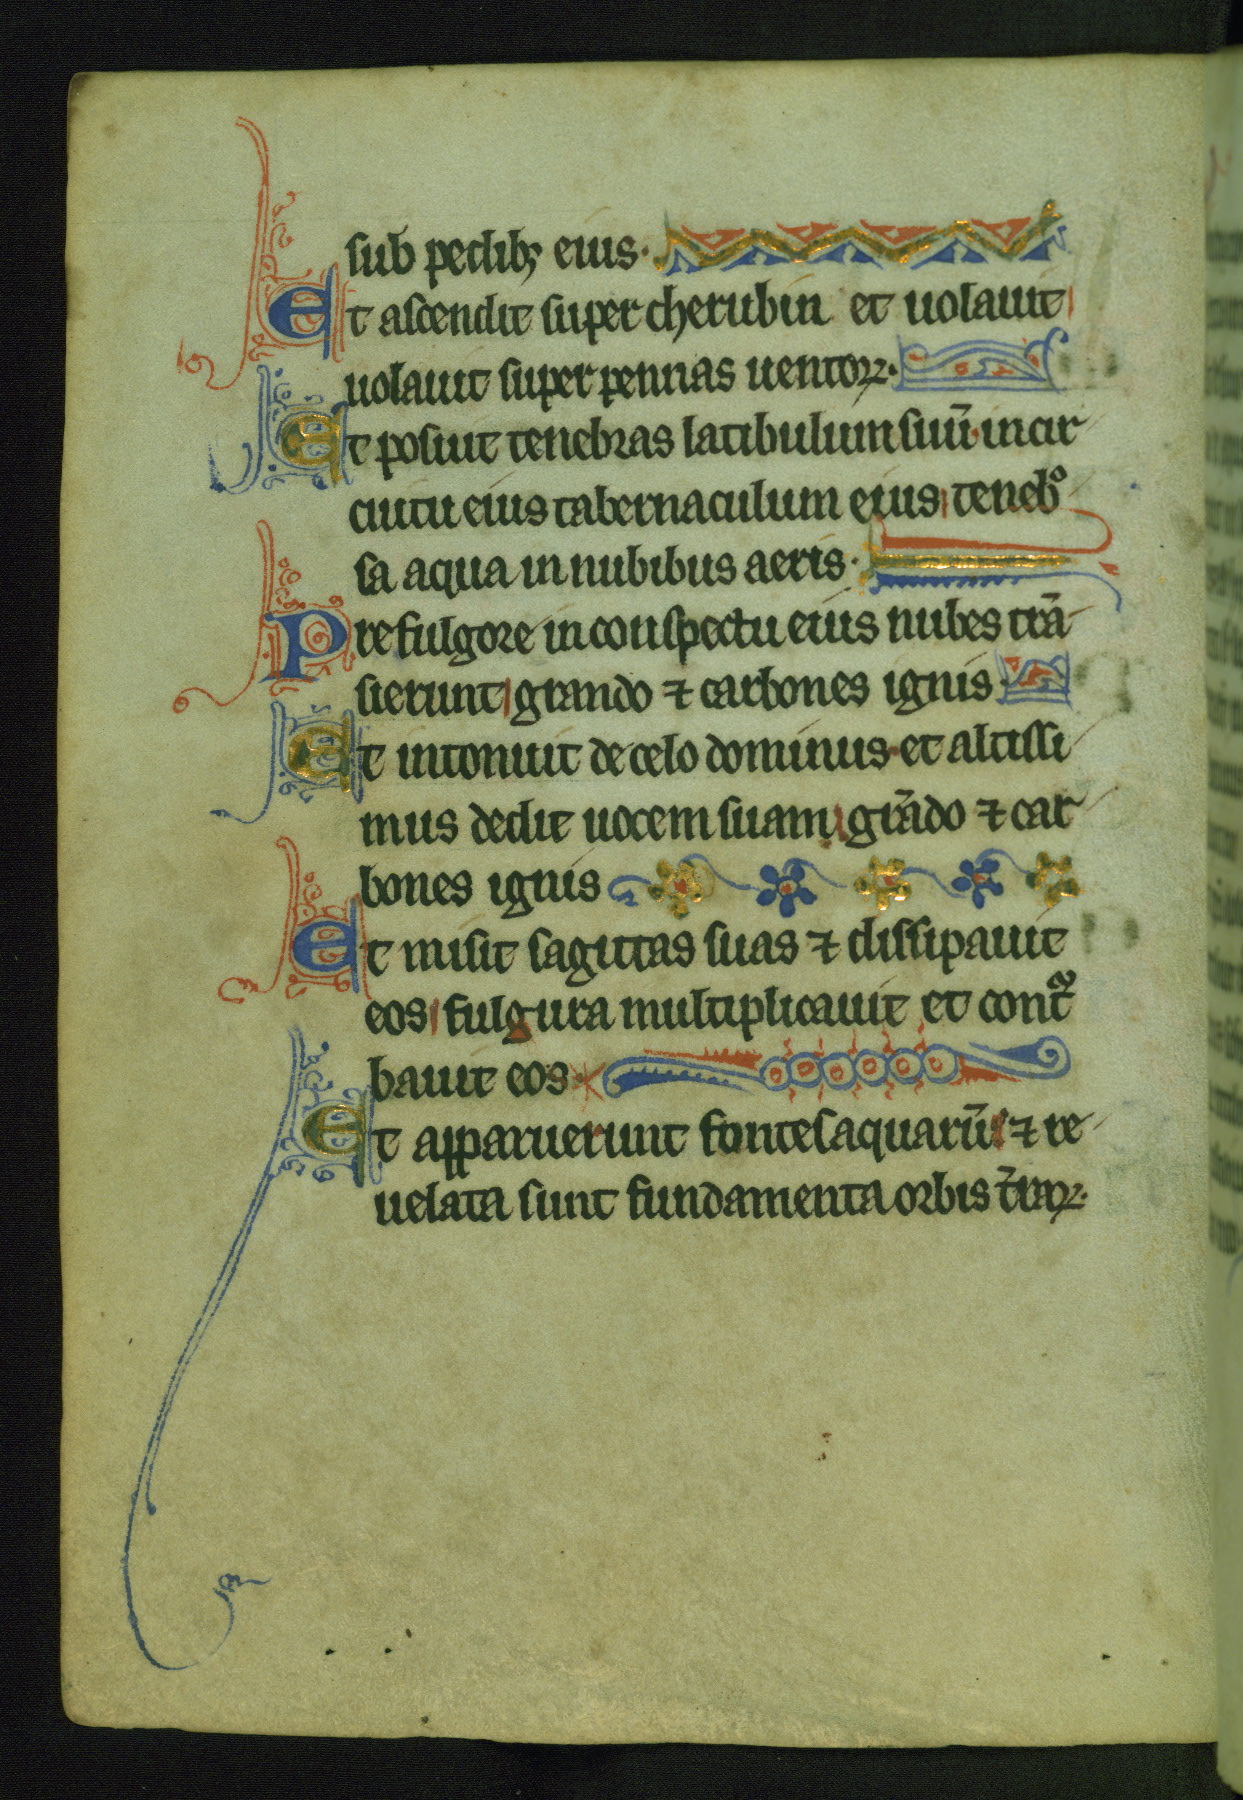 sub pedibꝫ eius·
Et ascendit super cherubin et uolauit
uolauit super pennas uentoꝝ·
Et posuit tenebras latibulum suū in cir
cuitu eius tabernaculum eius tenebͦ
sa aqua in nubibus aeris·
Pre fulgore in conspectu eius nubes trā
sierunt grando ⁊ carbones ignis·
Et intonuit de celo dominus et altissi
mus dedit uocem suam grādo ⁊ car
bones ignis
Et misit sagittas suas ⁊ dissipauit
eos fulgura multiplicauit et contᷓ
bauit eos
Et apparuerunt fontes aquarū ⁊ re
uelata sunt fundamenta orbis t̄raꝝ·